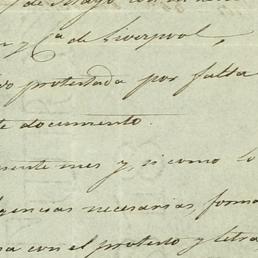 de Mayo
y Ca. de Liverpool,
protestada por falta
documento.
mes y, si como lo
necesarias, forma
con el protesto y letra